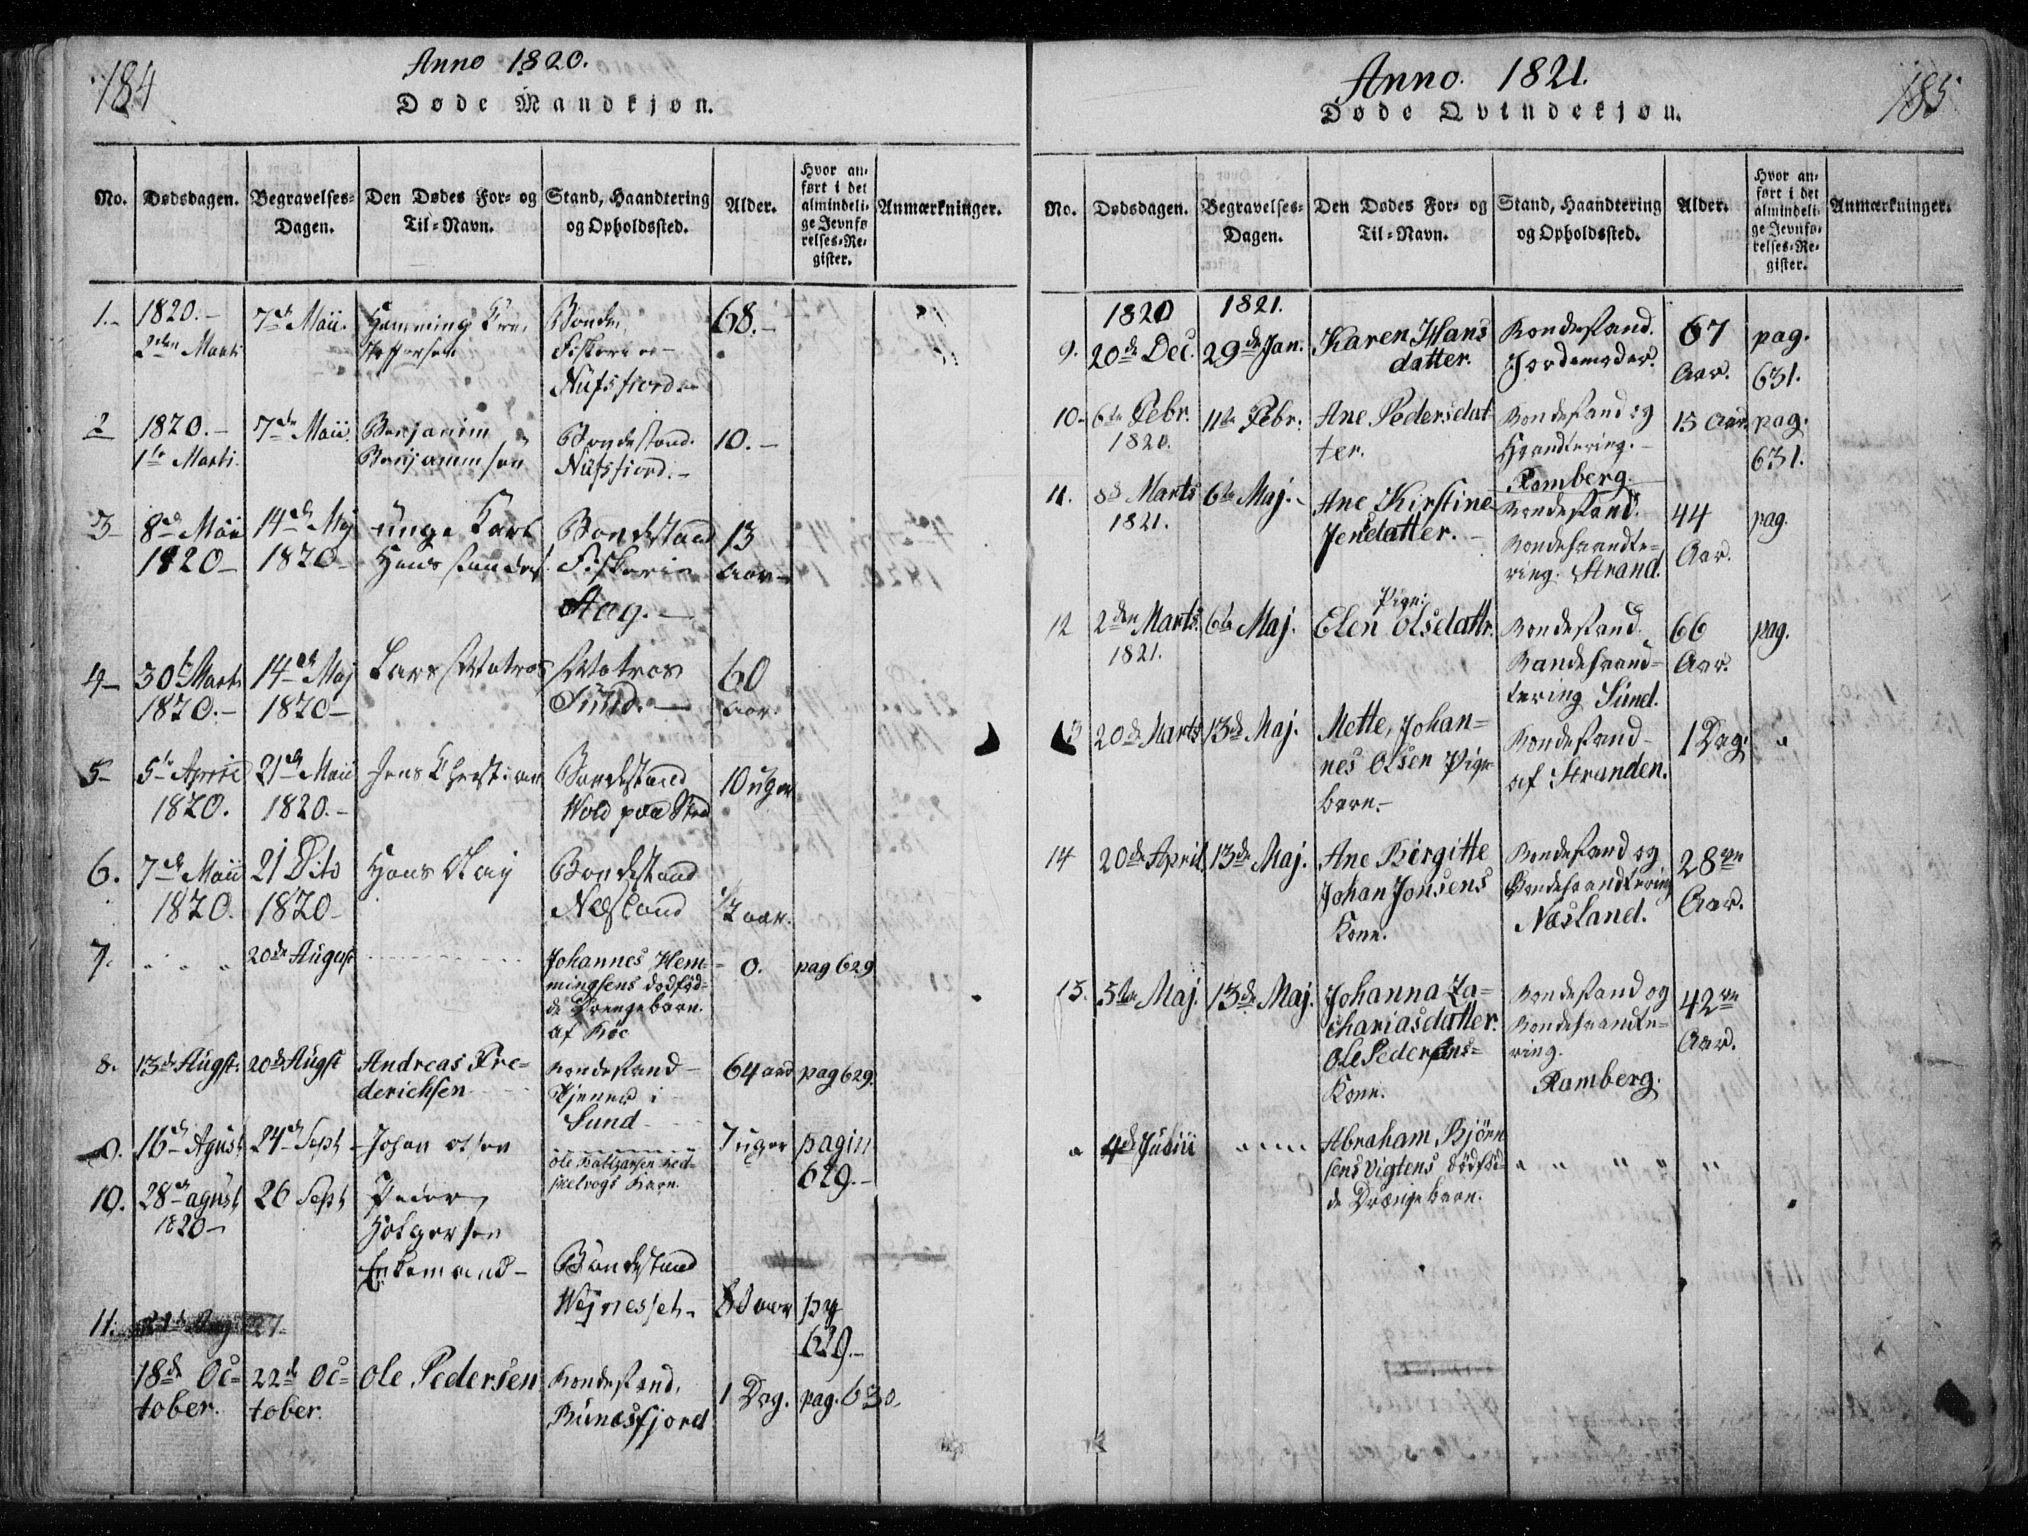 184
Anno 1820.
Døde Mandkjøn.
No.
Dødsdagen.
Begravelses-
Dagen.
Den Dødes For- og
Til-Navn.
Stand, Haandtering
og Opholdssted.
Alder.
Hvor an-
ført i det
almindeli-
ge Jevnfø
relses-Re-
gister.
Anmærkninger.
1.-
1820.-
2den Marti
7de Maii.
Hemming
Bonde,
Fiskerie
Nufsfiord
68.-
2
1820.-
1ste Marti.
7de Maii
Benjamin
Benjaminsen
Bondestand.
Nufsfiord.-
10.-
3
8de Maii
1820-
14de Maj
1820-
unge Karl
Bondestand
Fiskerie
13
Aar-
4-
30te Marti
1820.-
14de Maj
1820-
Lars Matros
Matros
Sund.-
60
Aar
5-
5te Aprill
1820.
21de Maii
1820.-
Jens Christian
Bondestand
Wold paa
10 uger
6.
7de Maii
1820.
21 Dito
1820-
Hans
Bondestand
Næsland
1/2 aar.
7.
" " "
20de August
Johannes Hem-
mingsens dødfød-
de Drengebarn.
af
0.
pag 629.
8.
13de Augst.
20de Augst
Andreas Fre-
derichsen
Bondestand-
Tjener i
Sund
64 aar
pag 629.
9.
16de Agust
24de Sept
Johan Olsen
Ole
Barn.
7 uger
pagin
629.-
10.
28de agust
1820-
26 Sept
Peder
Holgersen
Enkemand-
Bondestand
aar
pag
629.-
11.
18de Oc-
tober.
22de Oc-
tober.
Ole Pedersen
Bondestand,
Bunæsfjord
1 Dag.
pag. 630.
185
Anno. 1821.
Døde Qvindekjøn.
No.
Dødsdagen.
Begravelses-
Dagen.
Den Dødes For- og
Til-Navn.
Stand, Haandtering
og Opholdssted.
Alder.
Hvor an-
ført i det
almindeli-
ge Jevnfø-
relses-Re-
gister.
Anmærkninger.
9.
1820
20de Dec.
1821.
29de Jan.
Karen Hans
datter.
Bondestand.
Jordemoder.
67
Aar.
pag.
631.
10.
6te Febr.
1820.
11te Febr.
Ane Pedersdat
ter.
Bondestand og
Haandtering.-
Ramberg.
15 Aar
pag.
631.
11.
8de Marts
1821.
6te Maj.-
Ane Kirstine
Jensdatter.-
Bondestand.
Bondehaandte-
ring. Strand.
44
Aar.
pag.
12
2den Marts.
1821.
6te Maj.
Pige:
Elen Olsdattr.
Bondestand.
Bondehaand-
tering Sund.
66
Aar.
pag.
13
20de Marts
13de Maj.
Mette, Johan-
nes Olsen Pige
barn.-
Bondestand
af Stranden.
1 Dag.
"
14
20de April
13de Maj.
Ane Birgitte
Johan Jonsens
Kone.
Bondestand og
Bondehaandtering
Næsland.
28
Aar.
15.
5te Maj.
13de Maj.
Johanna Za-
chariasdatter.
Ole Pedersens-
Kone.
Bondestand og
Bondehaandte-
ring.
Ramberg.
42
Aar.
"
4de Julii
" " " "
Abraham Bjørn
sens Vigtens dødfød-
de Drængebarn.
" " " " "